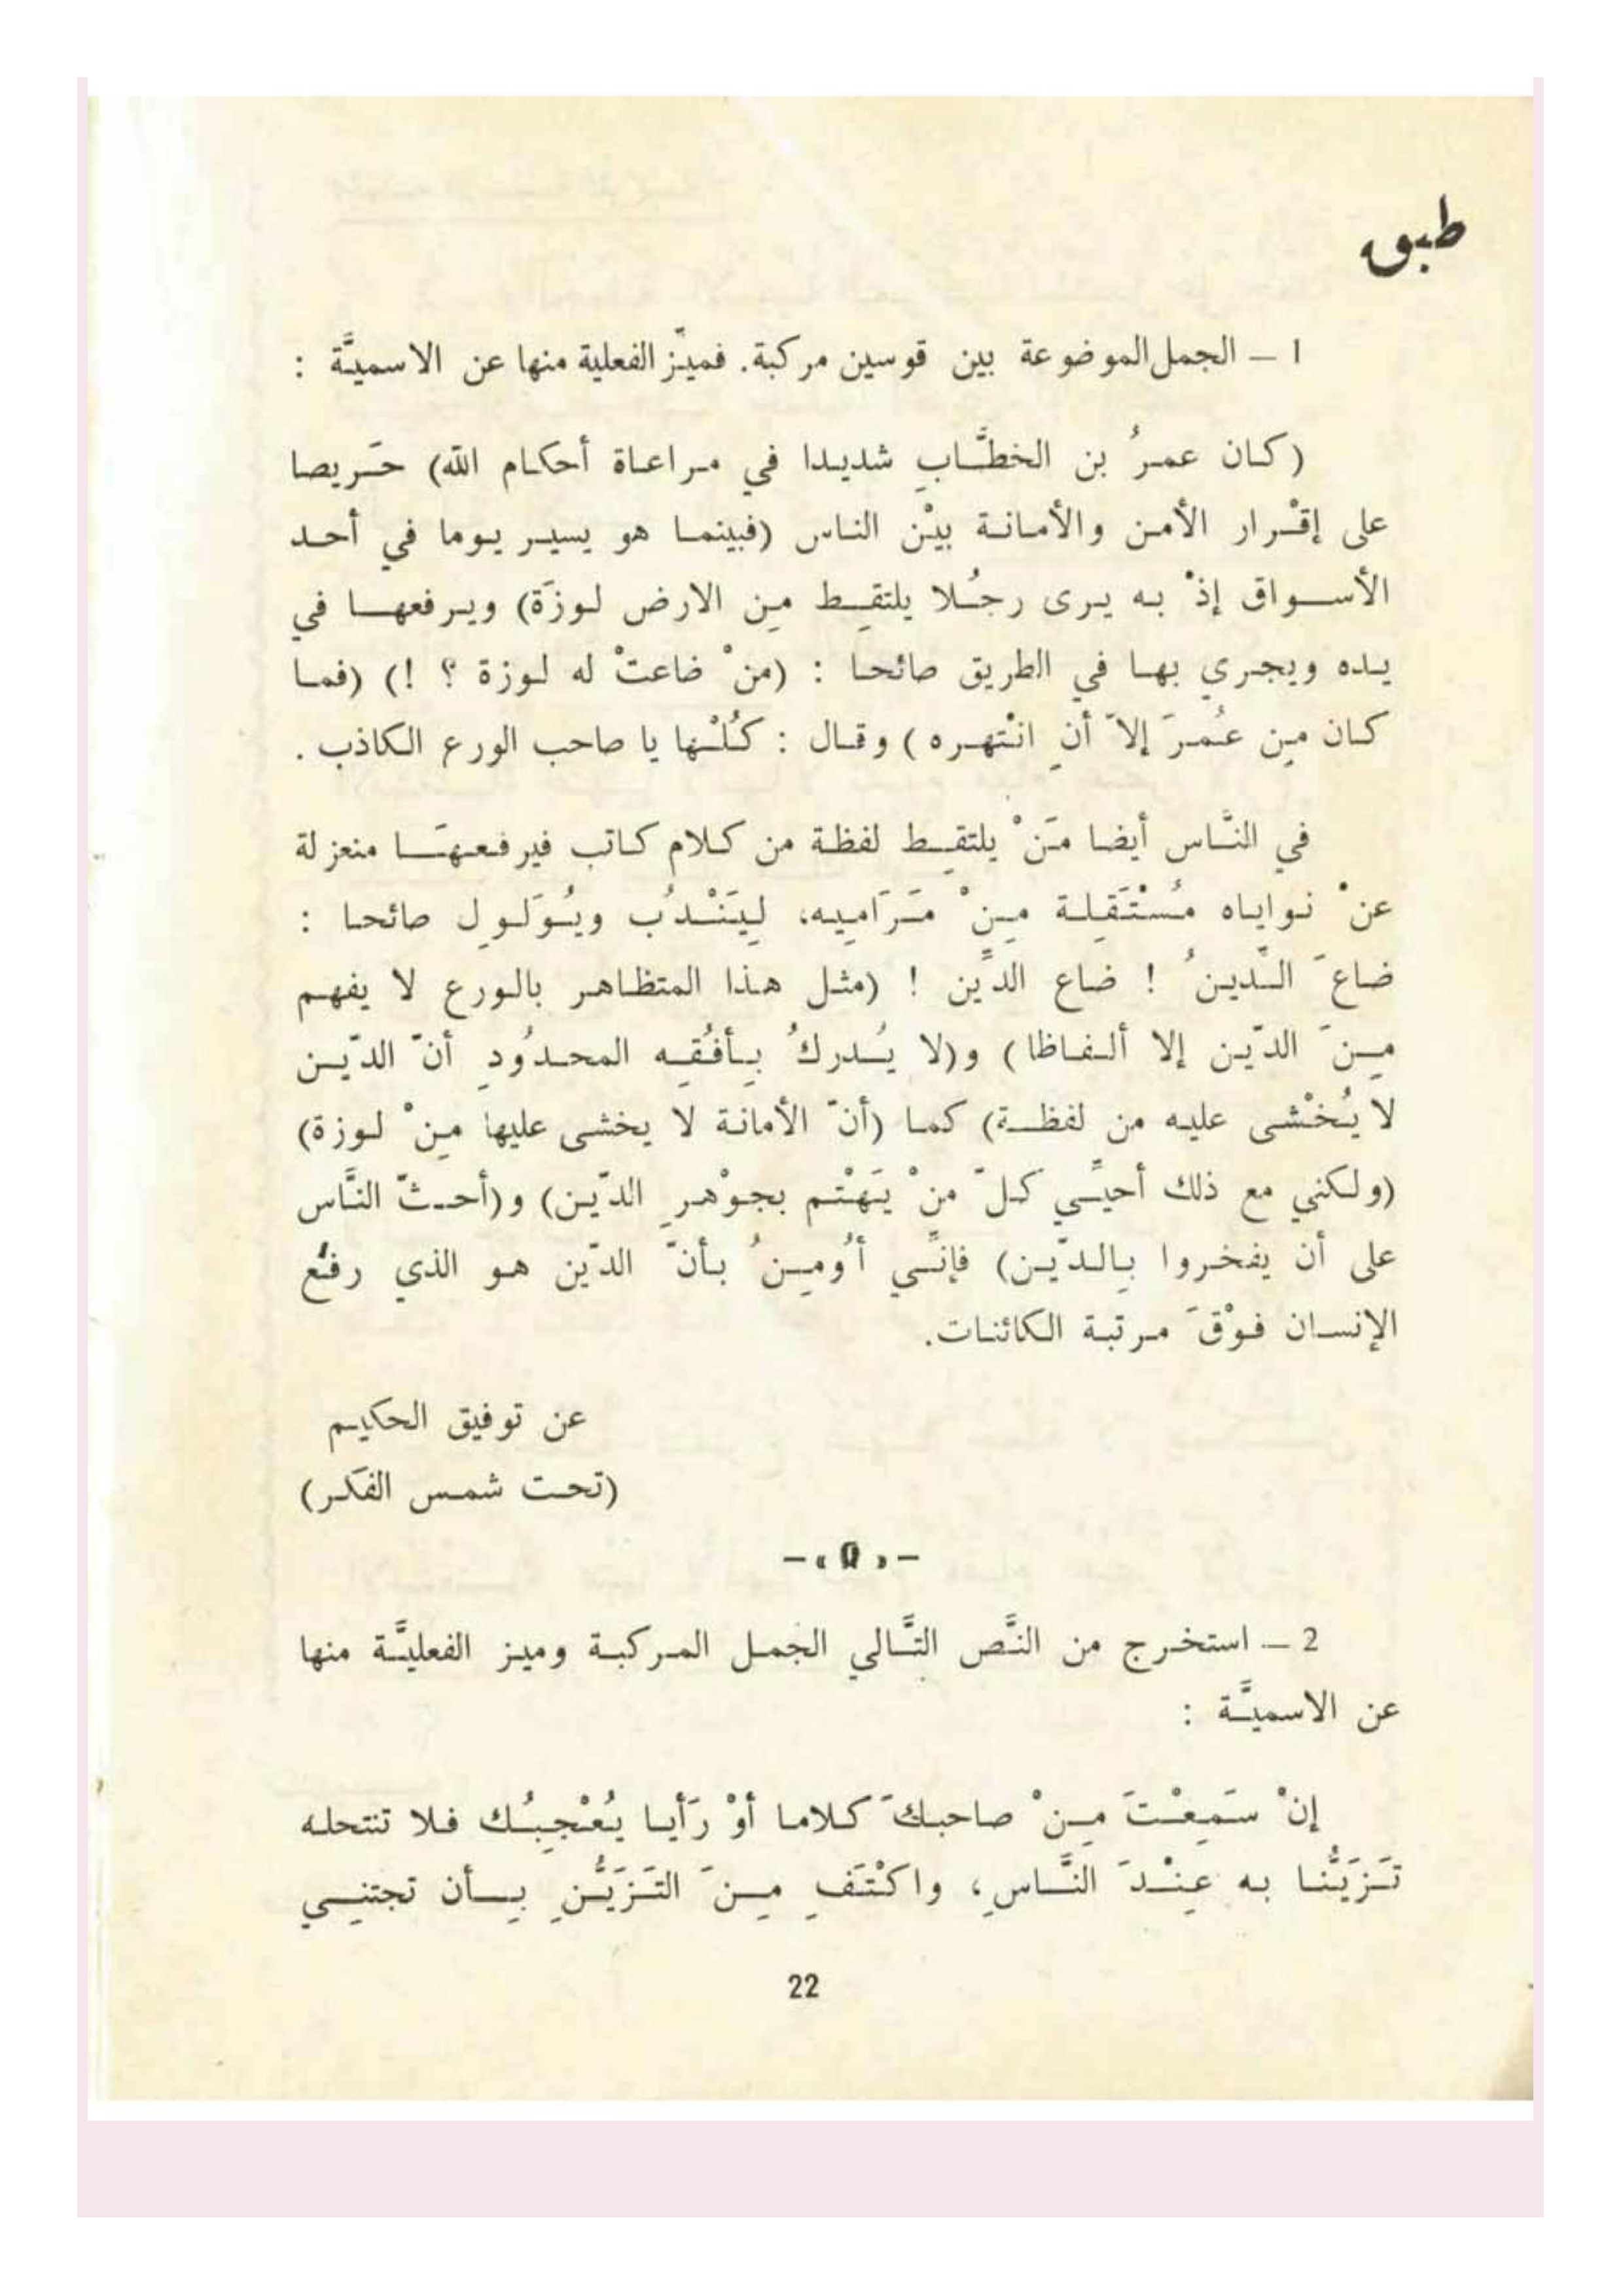 طبق
1 – الجمل الموضوعة بين قوسين مركبة. فميّز الفعلية منها عن الاسميَّة :
(كان عمرُ بن الخطَّابِ شديدا في مراعاة أحكام الله) حَريصا
على إقْرار الأمن والأمانة بيْن الناس (فبينما هو يسير يوما في أحد
الأسواق إذْ به يرى رجُلا يلتقِط مِن الارض لوزَة) ويرفعها في
يده ويجري بها في الطريق صائحا : (منْ ضاعتْ له لوزة ؟ !) (فما
كان مِن عُمرَ إلاّ أنِ انْتهره) وقال : كُلْها يا صاحب الورع الكاذب .
في النَّاس أيضا مَنْ يلتقِط لفظة من كلام كاتب فيرفعهَا منعزلة
عنْ نواياه مُسْتَقِلة مِنْ مَرَامِيه، لِيَنْدُب ويُوَلوِل صائحا :
ضاعَ الدّينُ ! ضاع الدِّين ! (مثل هذا المتظاهر بالورع لا يفهم
مِنَ الدّين إلا ألفاظا) و(لا يُدركُ بِأفُقِه المحدُودِ أنّ الدّين
لا يُخْشى عليه من لفظة) كما (أنّ الأمانة لا يخشى عليها مِنْ لوزة)
(ولكني مع ذلك أحيِّي كلّ منْ يَهْتم بجوْهرِ الدّين) و(أحثّ النَّاس
على أن يفخروا بِالدّين) فإنِّي أُومِنُ بأنَّ الدّين هو الذي رفع
الإنسان فوْقَ مرتبة الكائنات.
عن توفيق الحكيم
(تحت شمس الفكر)
2 – استخرج من النَّص التَّالي الجمل المركبة وميز الفعليَّة منها
عن الاسميَّة :
إنْ سَمِعْتَ مِنْ صاحبكَ كلاما أوْ رَأيا يُعْجِبُك فلا تنتحله
تَزَيُّنا به عِنْدَ النَّاسِ، واكْتَفِ مِنَ التَزَيُّنِ بِأن تجتنِي
22